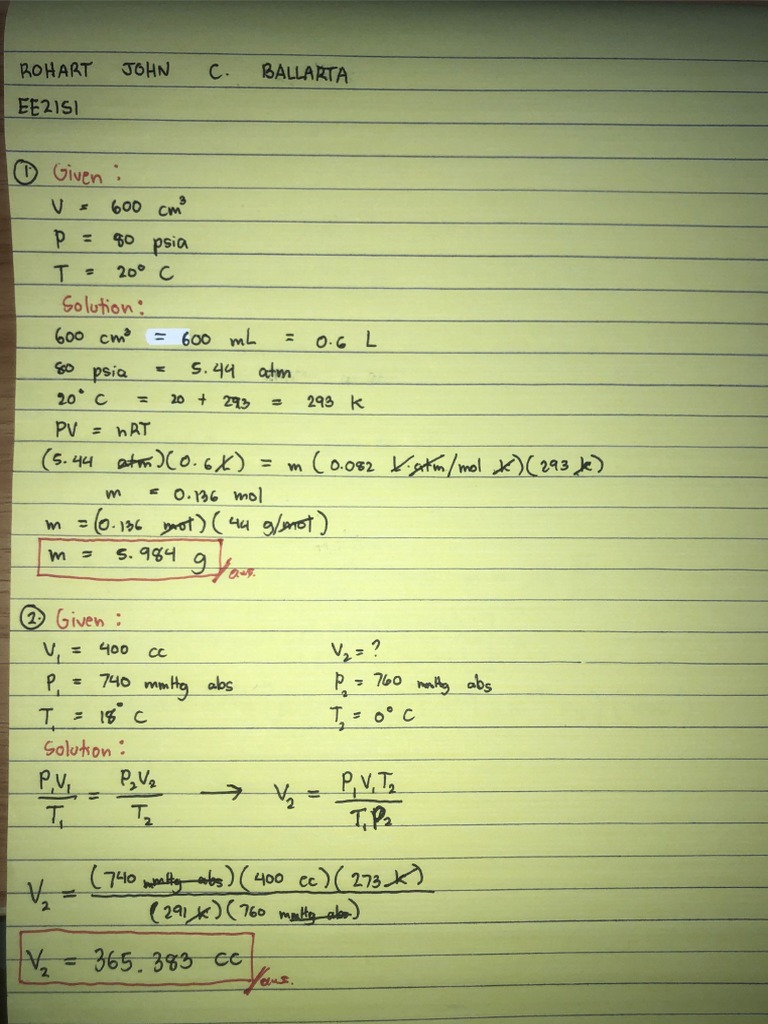 ROHART JOHN C. BALLARTA
EE21S1
① Given :
V = 600 cm³
P = 80 psia
T = 20° C
Solution :
600 cm³ = 600 mL = 0.6 L
80 psia = 5.44 atm
20° C = 20 + 293 = 293 K
PV = nRT
(5.44 atm)(0.6 L) = m (0.082 L·atm/mol K)(293 K)
m = 0.136 mol
m = (0.136 mol)(44 g/mol)
m = 5.984 g
ans.
②. Given :
V₁ = 400 cc V₂ = ?
P₁ = 740 mmHg abs P₂ = 760 mmHg abs
T₁ = 18° C T₂ = 0° C
Solution :
P₁V₁/T₁ = P₂V₂/T₂ → V₂ = P₁V₁T₂/T₁P₂
V₂ = (740 mmHg abs)(400 cc)(273 K)/(291 K)(760 mmHg abs)
V₂ = 365.383 cc
ans.